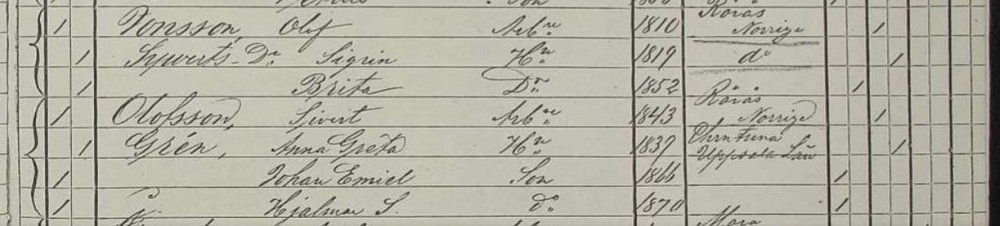 Son
Jonsson, Olof Arb:n 1810 Rörås Norrige
Syverts-Dr. Sigrin H:n 1819 do
Brita D:r 1852
Olofsson, Sivert Arb:n 1843 Rörås Norrige
Grén, Anna Greta H:n 1839
Uppsala Län
Johan Emiel Son 1866
Hjalmar S. do 1870
Mora